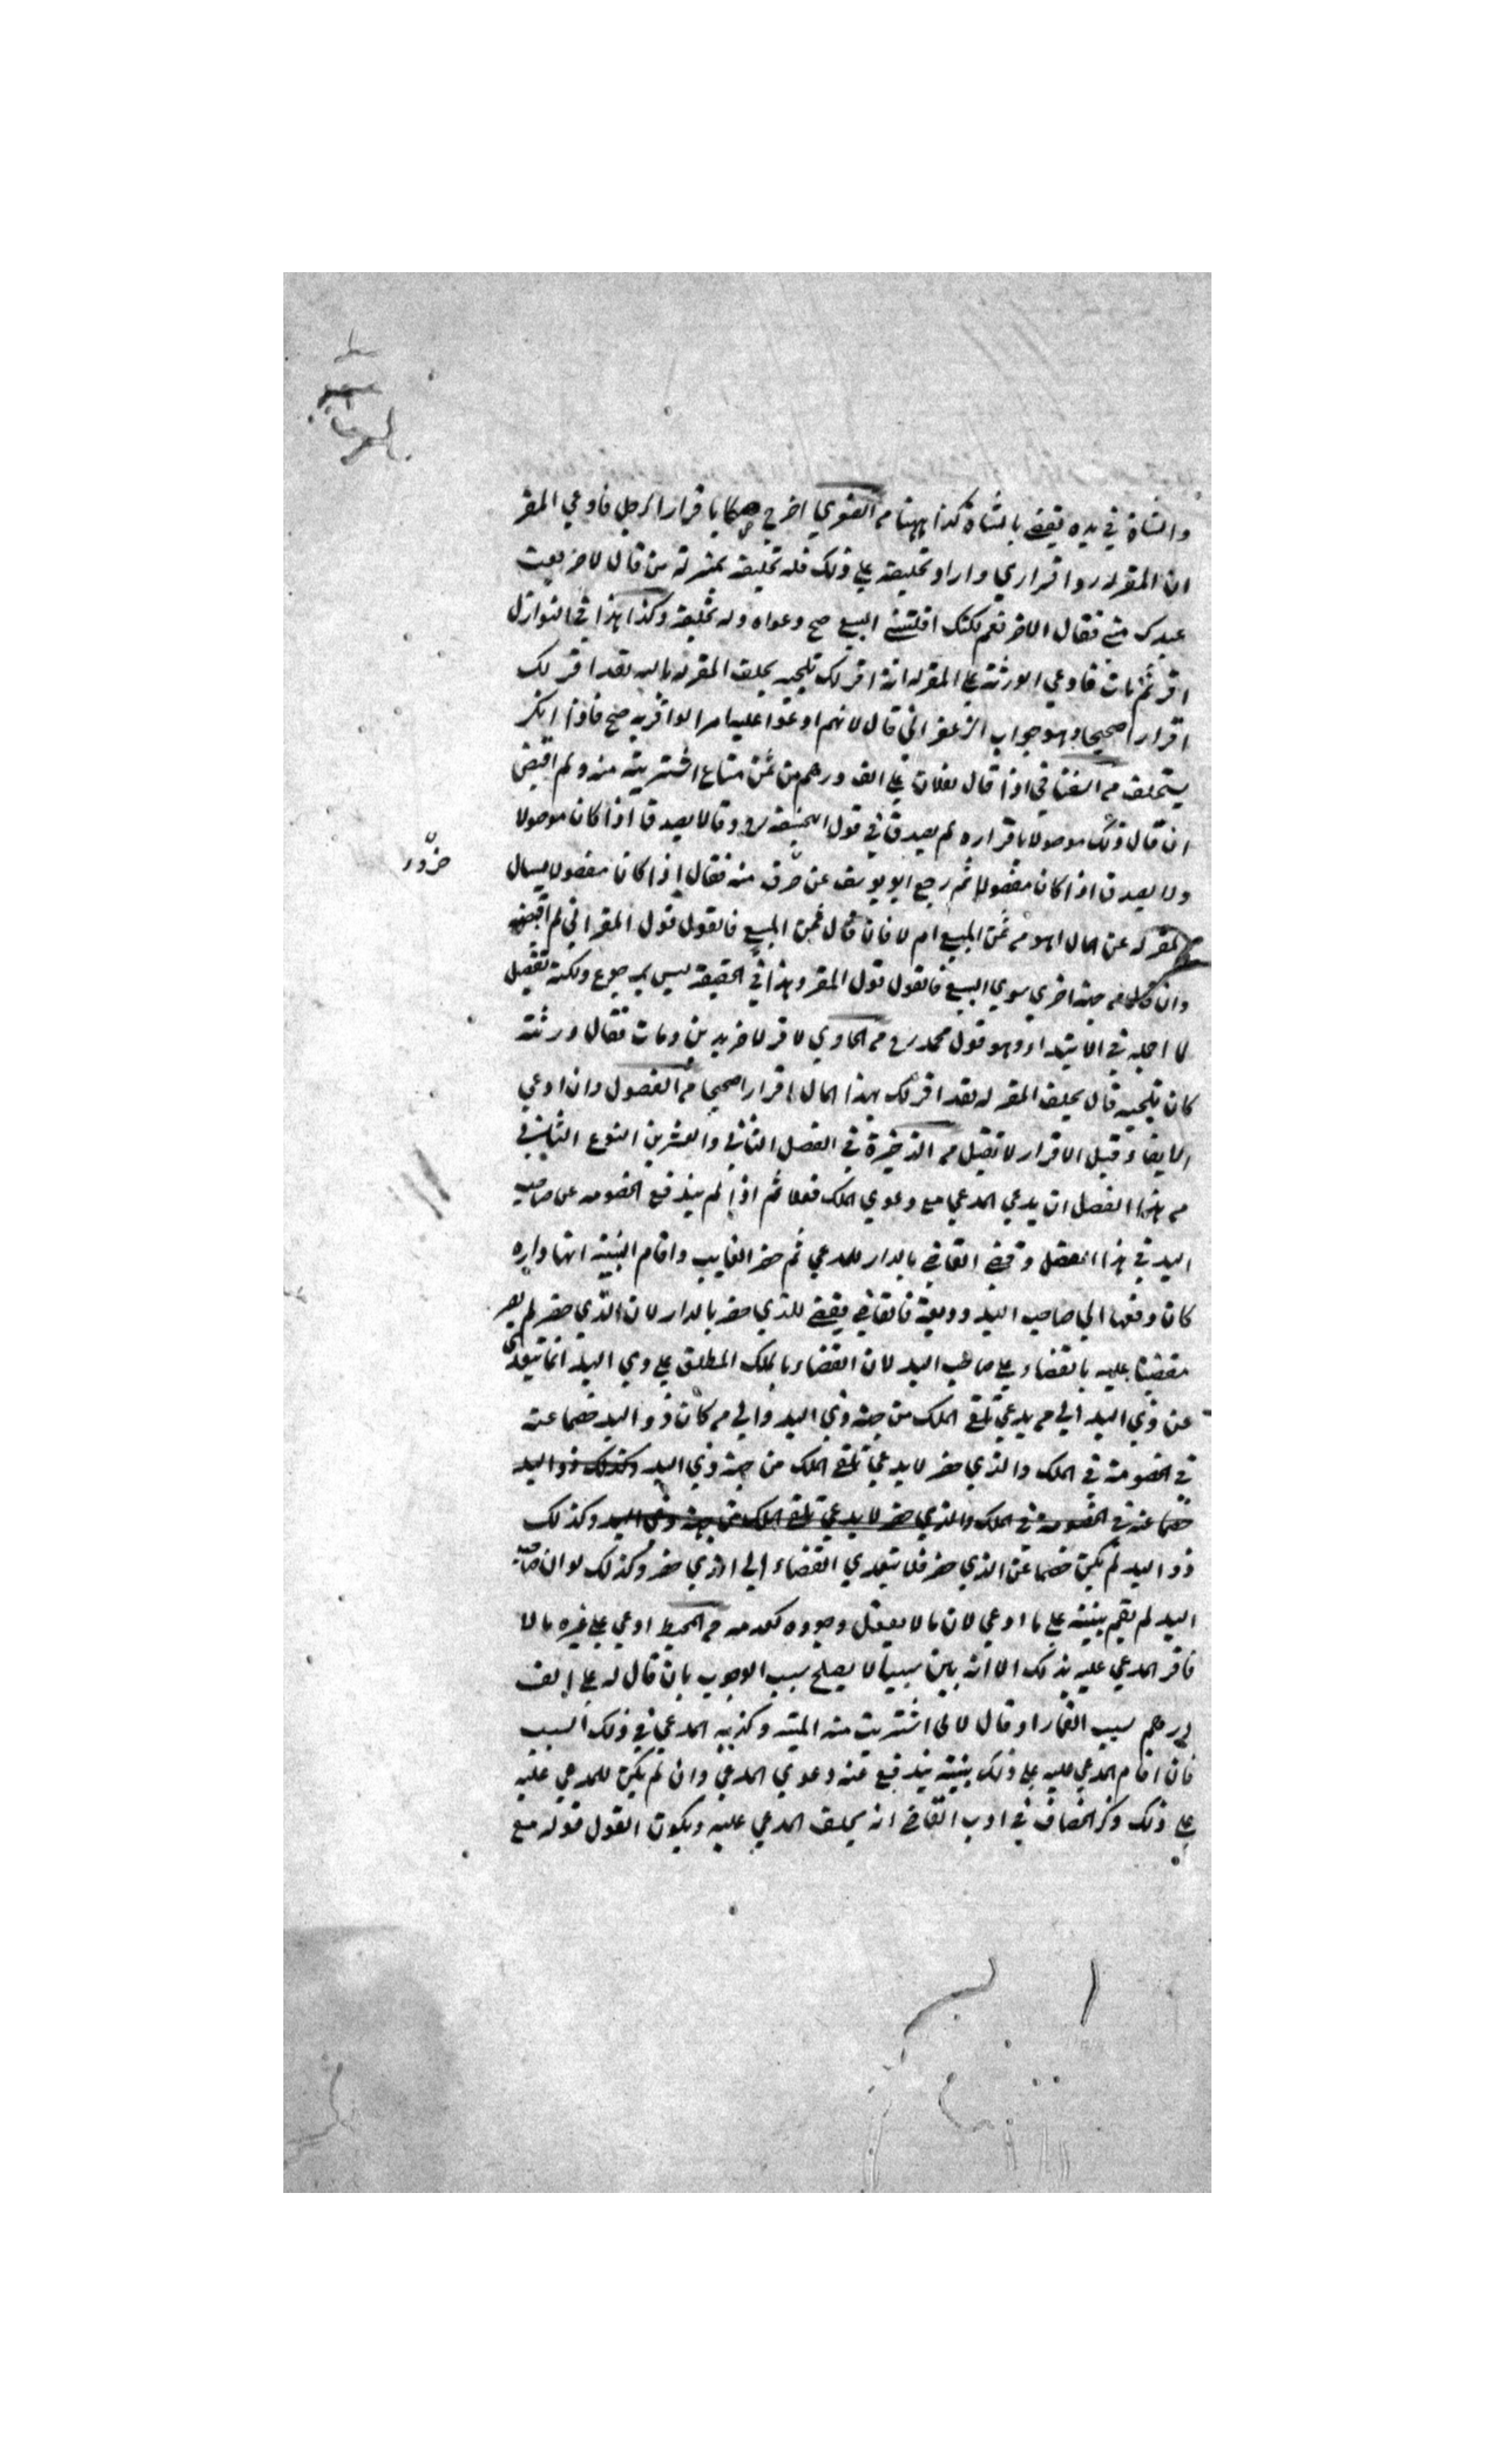 والشاة في يده يقضي بالشاة كذا ههنا من الفتوي اخرج صكا باقرار الرجل فادعي المقر
ان المقر له رد اقراري واراد تحليفه علي ذلك فله تحليفه بمنزلة من قال لاخر بعت
عبدك مني فقال الاخر نعم لكنك اقلتني البيع صح دعواه وله تحليفه وكذا هذا في النوازل
اقر ثم مات فادعي الورثة علي المقر له انه اقر لك تلجيه يحلف المقر له بالله لقد اقر لك
اقرارا صحيحا وهو جواب الزعفراني قال لانهم ادعوا عليه امرا لو اقر به صح فاذا انكر
يستحلف من اذا قال لفلان علي الف درهم من ثمن متاع اشتريته منه ولم اقبض
ان قال ذلك موصولا باقراره لم يصدق في قول ابي حنيفه رح وقالا يصدق اذا كان موصولا
ولا يصدق اذا كان مفصولا ثم رجع ابو يوسف عن حرف منه فقال اذا كان مفصولا يسال
المقر له عن المال اهو من ثمن المبيع ام لا فان قال ثمن المبيع فالقول قول المقر اني لم اقبضه
وان قال من جهة اخري سوي البيع فالقول قول المقر وهذا في الحقيقة ليس برجوع ولكنه تفصيل
لما اجله في الابتداء وهو قول محمد رح من الحاوي لاخر بدين ومات فقال ورثته
كان تلجيه قال يحلف المقر له لقد اقر لك بهذا المال اقرارا صحيحا من الفصول وان ادعي
الايفاء قبل الاقرار لا تقبل من الذخيرة في الفصل الثاني والعشرين النوع الثاني في
من هذا الفصل ان يدعي المدعي مع دعوي الملك فعلا ثم اذا لم يندفع الخصومه عن صاحب
اليد في هذا الفصل وقضي القاضي بالدار للمدعي ثم حضر الغايب واقام البينة انها داره
كان دفعها الي صاحب اليد وديعة فالقاضي يقضي للذي حضر بالدار لان الذي حضر لم يصر
مقضيا عليه بالقضاء علي صاحب اليد لان القضاء بالملك المطلق علي ذي اليد انما يتعدي
عن ذي اليد الي من يدعي تلقي الملك من جهة ذي اليد والي من كان ذو اليد خصما عنه
في الخصومة في الملك والذي حضر لا يدعي تلقي الملك من جهة ذي اليد وكذلك ذو اليد
خصما عنه في الخصومة في الملك والذي حضر لا يدعي تلقي الملك من جهة ذي اليد وكذلك
ذو اليد لم يكن خصما عن الذي حضر فلا يتعدي القضاء الي الذي حضر وكذلك لو ان صاحب
اليد لم يقم بينة علي ما ادعي لان ما لا يعقل وجوده كعدمه من المحيط ادعي علي غيره مالا
فاقر المدعي عليه بذلك الا انه بين سببا لا يصلح سبب الوجوب بان قال له علي الف
درهم بسبب القمار او قال لاني اشتريت منه الميتة وكذبه المدعي في ذلك السبب
فان اقام المدعي عليه علي ذلك بينة يندفع عنه دعوي المدعي وان لم يكن للمدعي عليه
علي ذلك ذكر الخصاف في ادب القاضي انه يحلف المدعي عليه ويكون القول قوله مع